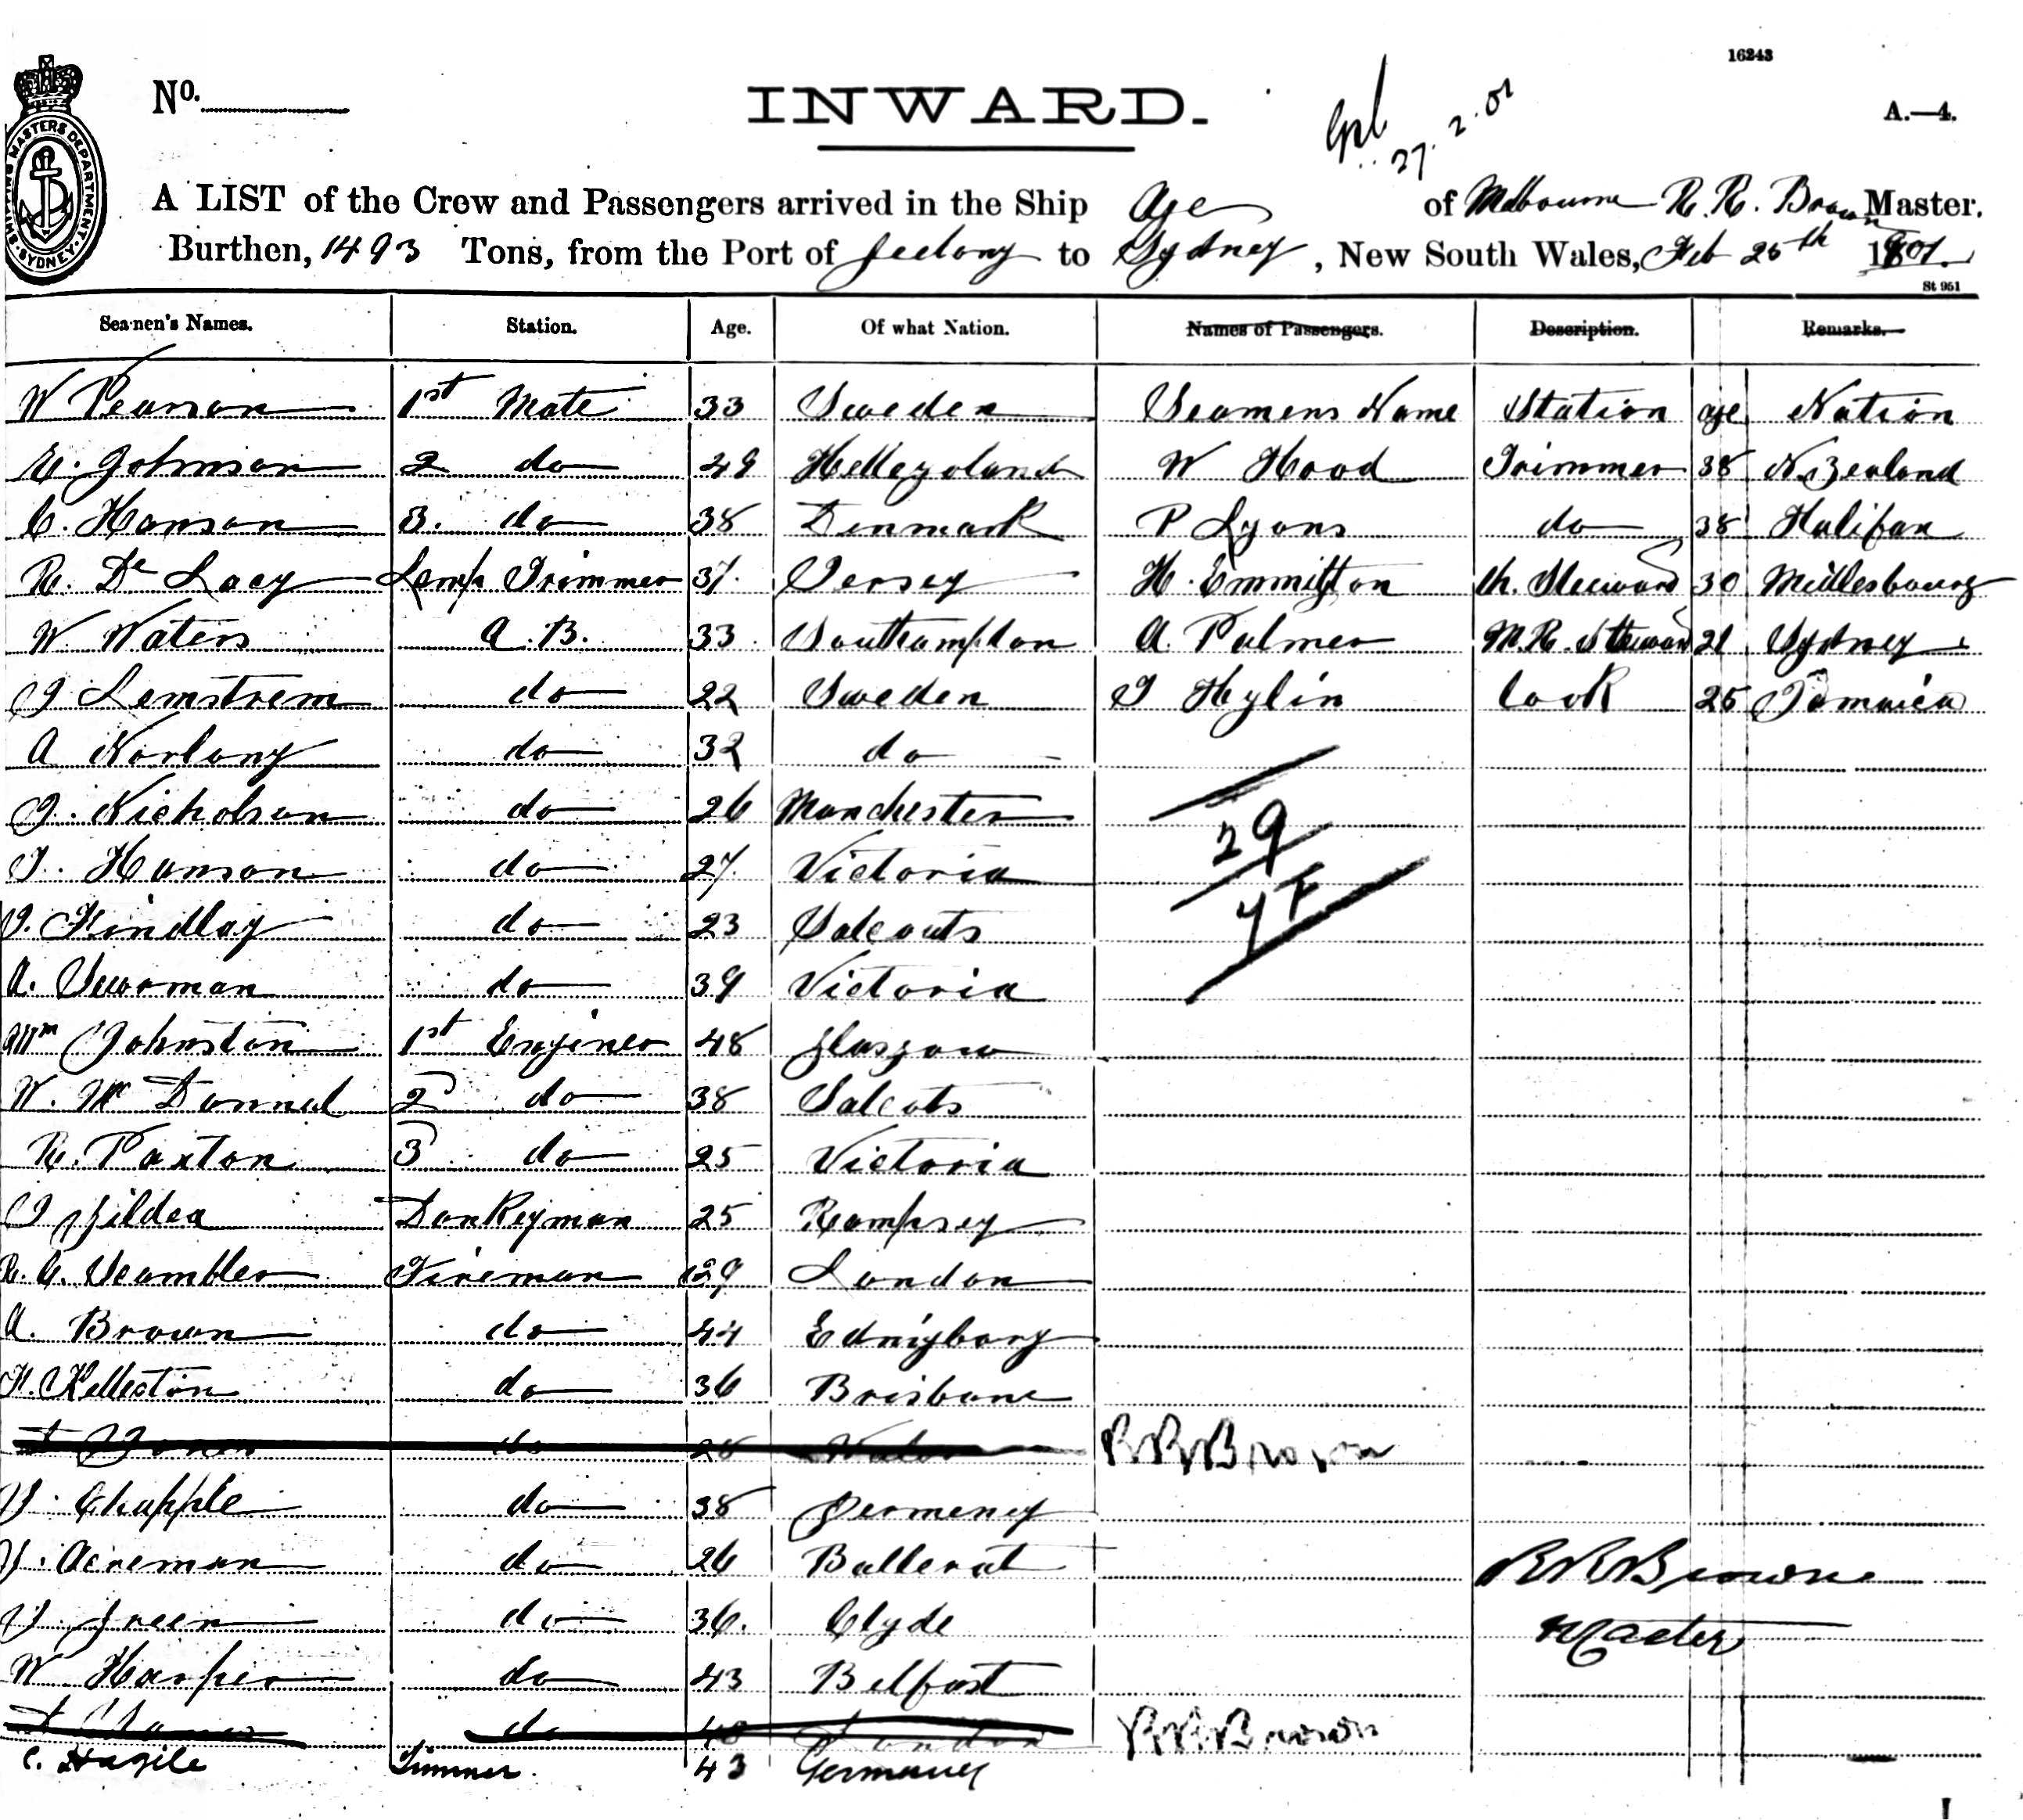 16243
No.
INWARD.
27.2.01
A.—4.
SHIPPING MASTERS DEPARTMENT. SYDNEY.
A LIST of the Crew and Passengers arrived in the Ship Age of Melbourne R. R. Brown Master.
Burthen, 1493 Tons, from the Port of Geelong to Sydney, New South Wales, Feb 25th 1901.
St 951
Seamen's Names. Station. Age. Of what Nation. Names of Passengers. Description. Remarks.
W Pearson 1st Mate 33 Sweden Seamens Name Station age Nation
E. Johnson 2 do 49 Hellegoland W Hood Trimmer 38 N. Zealand
C. Hanson 3. do 38 Denmark P Lyons do 38 Halifax
R. De Lacy Lamp Trimmer 37. Jersey H. Emmitton Ch. Steward 30 Middlesbourg
W Waters A.B. 33 Southampton A. Palmer M.R. Steward 21 Sydney
J Lemstrem do 22 Sweden J Hylin Cook 25 Jamaica
A Norlong do 32 do
J. Nicholson do 26 Manchester
29
J. Hanson do 27. Victoria
J. Findlay do 23 Salcouts
A. Sworman do 39 Victoria
Wm Johnston 1st Engineer 48 Glasgow
W. Mc Donnal 2 do 38 Salcots
R. Paxton 3 do 25 Victoria
J Gildea Donkeyman 25 Kampsey
R. C. Scambler Fireman 29 London
A. Brown do 44 Ednigborg
H. Kelleston do 36 Brisbane
Jones do 28 RRBrown
J. Chapple do 38 Germeney
J. Acreman do 26 Ballerat RRBrown
J. Green do 36. Clyde Master
W Harper do 43 Belfast
do 48 London RRBrown
C. Hagile Trimmer 43 Germany